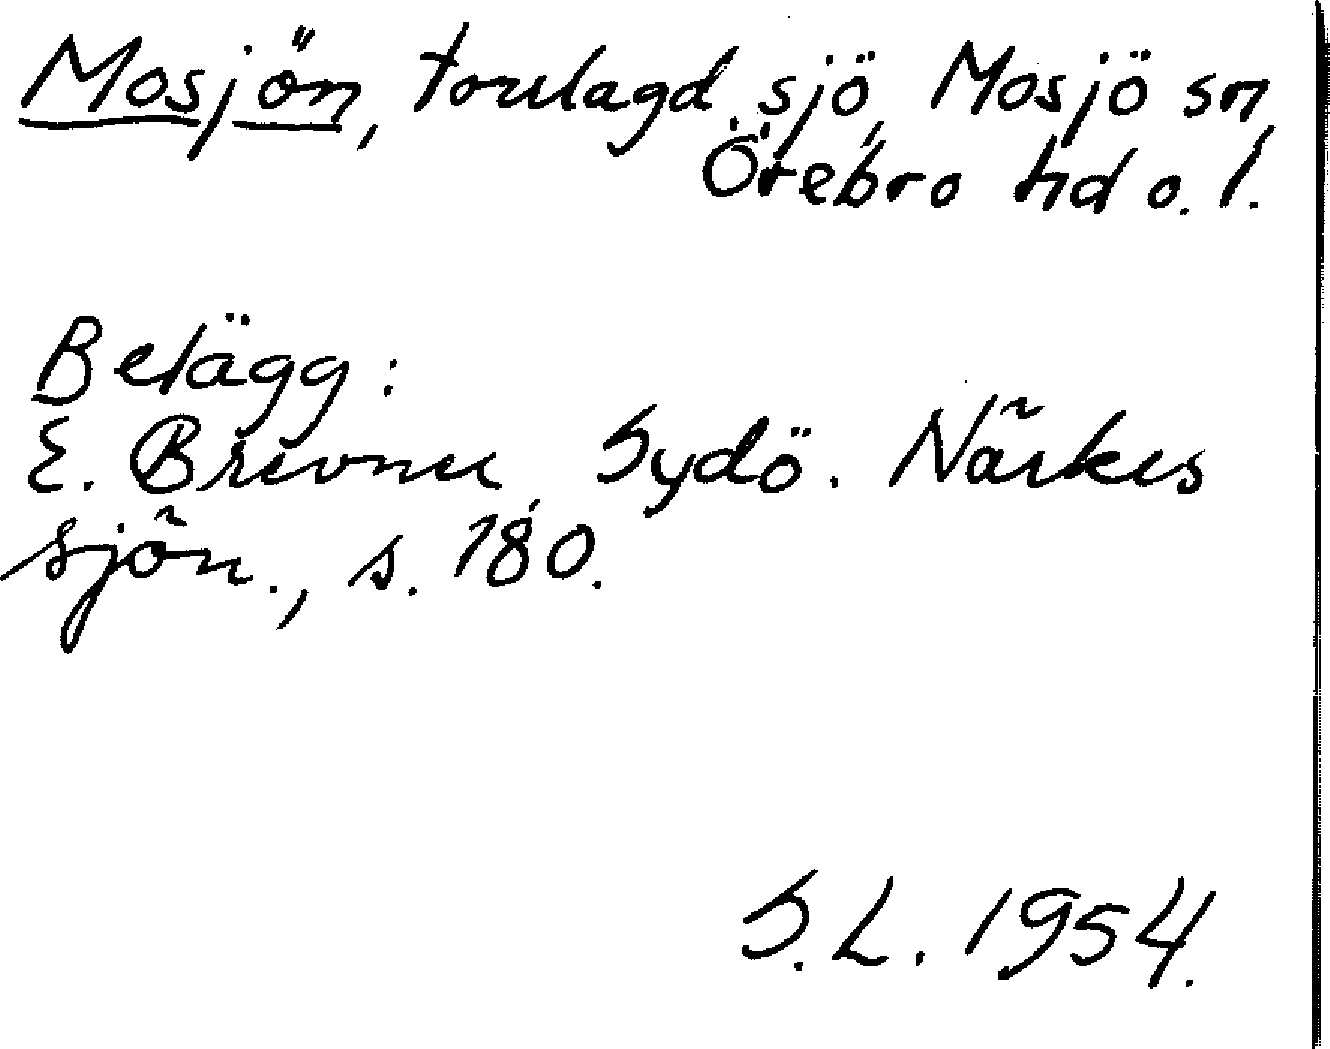 Mosjön, torrlagd sjö, Mosjö sn,
Örebro hd o. l.
Belägg:
E. Brevner, Sydö. Närkes
sjön., s. 180.
S.L. 1954.